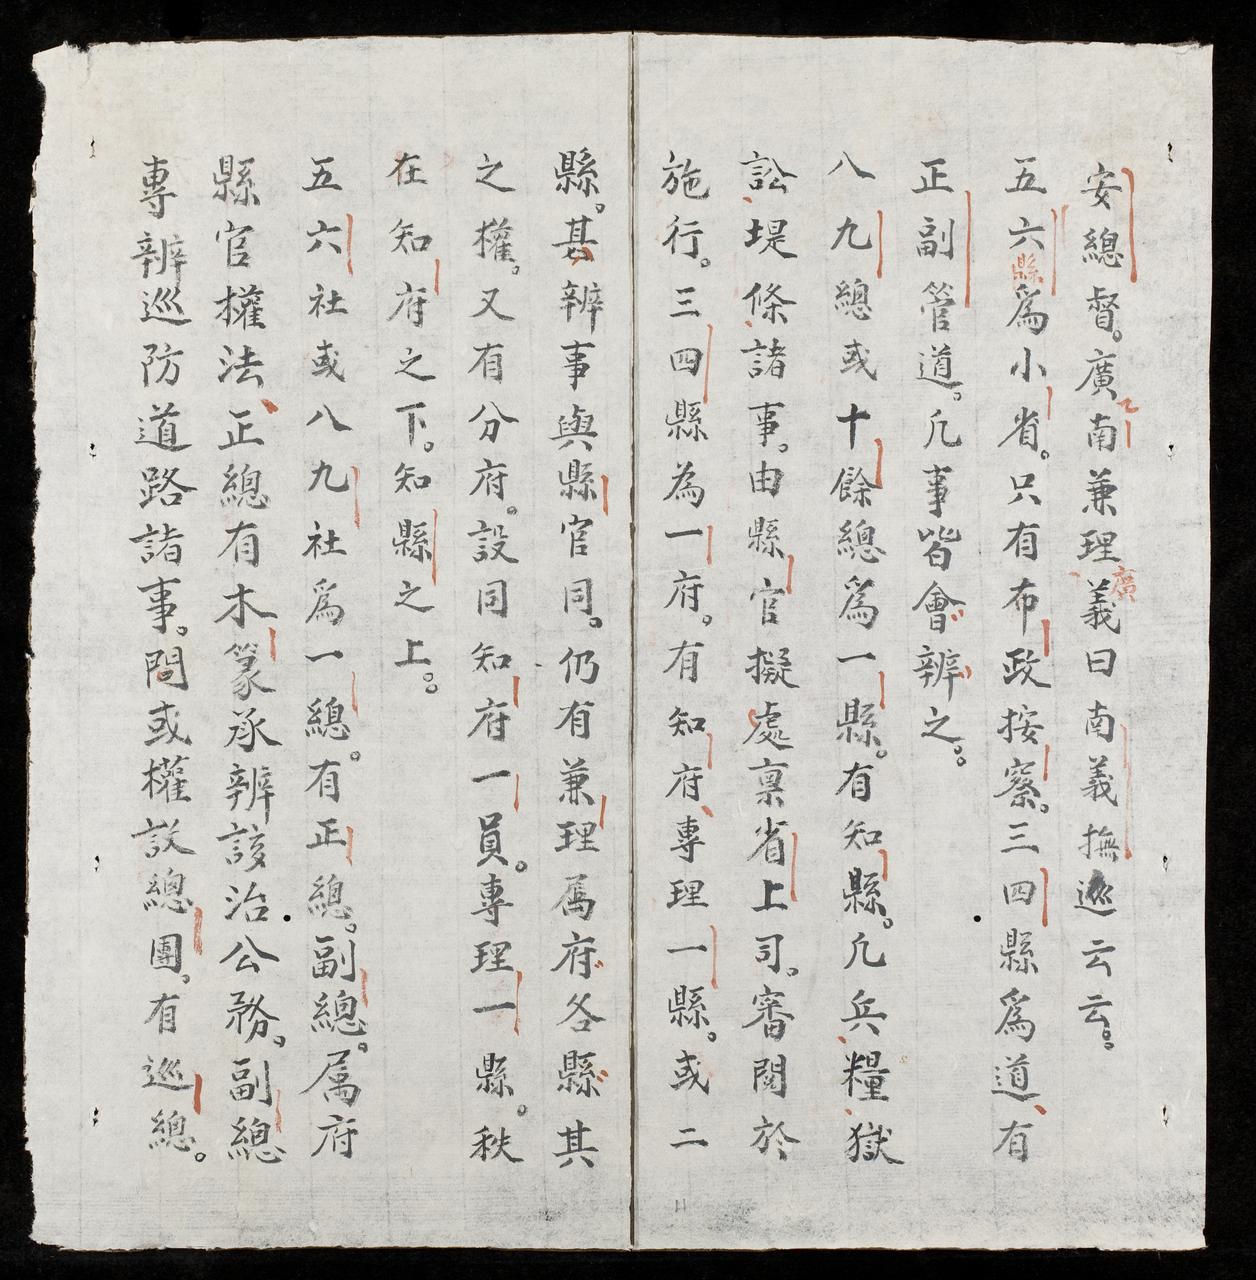 安總督。廣南兼理義曰南義撫巡云云。
廣
五六縣爲小省。只有布政按察。三四縣爲道有
正副管道。凢事皆會辨之。
八九總或十餘總爲一縣。有知縣。凢兵糧獄
訟堤條諸事。由縣官擬處稟省上司。審閱於
施行。三四縣為一府。有知府專理一縣。或二
縣。其辨事與縣官同。仍有兼理属府各縣其
之權。又有分府。設同知府一員。專理一縣。秩
在知府之下。知縣之上。
五六社或八九社爲一總。有正總。副總。属府
縣官權法正總有木篆承辨該治公務。副總
專辨巡防道路諸事。間或權設總團。有巡總。